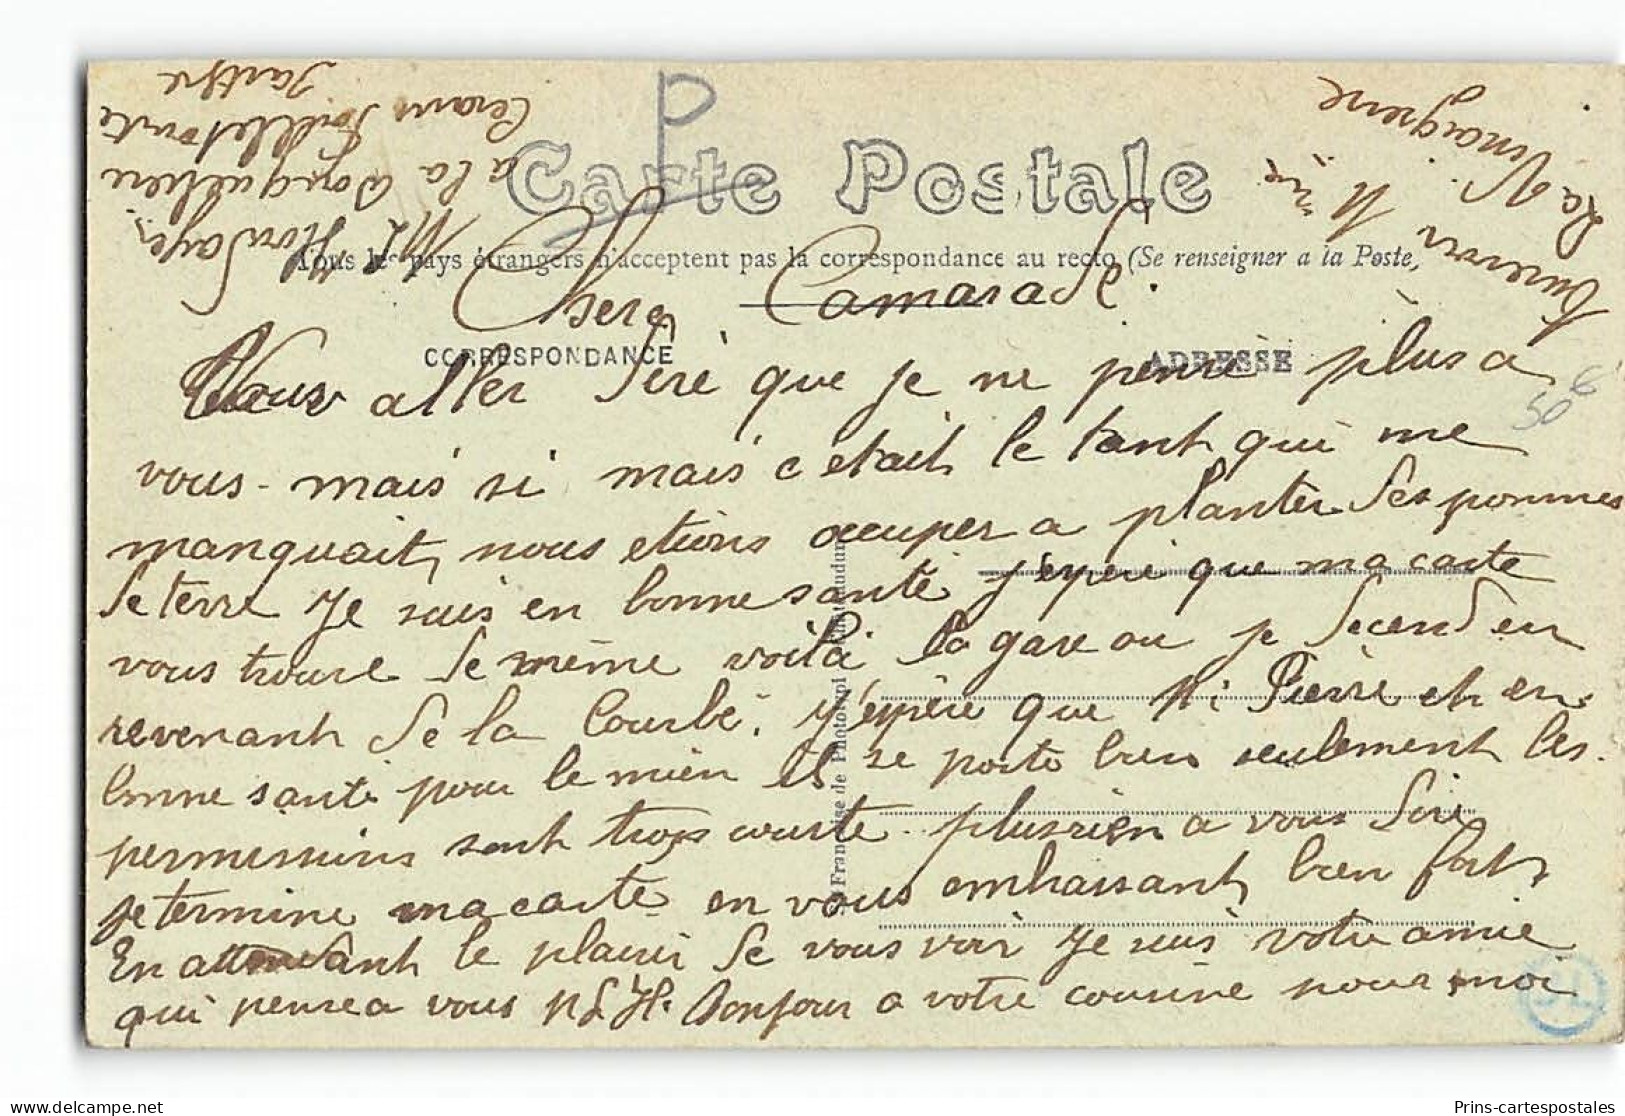 Carte Postale
Tous les pays étrangers n'acceptent pas la correspondance au recto (Se renseigner a la Poste)
CORRESPONDANCE
ADRESSE
Chere Camarade.
Vous aller dire que je ne pense plus a
vous - mais si mais c'etait le tant qui me
manquait, nous etions occuper a planter des pommes
de terre Je suis en bonne santé j'espere que ma carte
vous trouve de même voilà la gare ou je decend en
revenant de la Courbe. j'espère que Mr Pierre et en
bonne santé pour le mien il se porte bien seulement les
permissions sont trop courte plus rien a vous dire
je termine ma carte en vous embrassant bien fort
En attendant le plaisir de vous voir Je suis votre amie
qui pense a vous M L H. Bonjour a votre cousine pour moi
Mlle
a la
Cerans Foulletourte
Sarthe
La Vinaigrerie
Française de Phototypi
56
€
SL
Prins-cartespostales